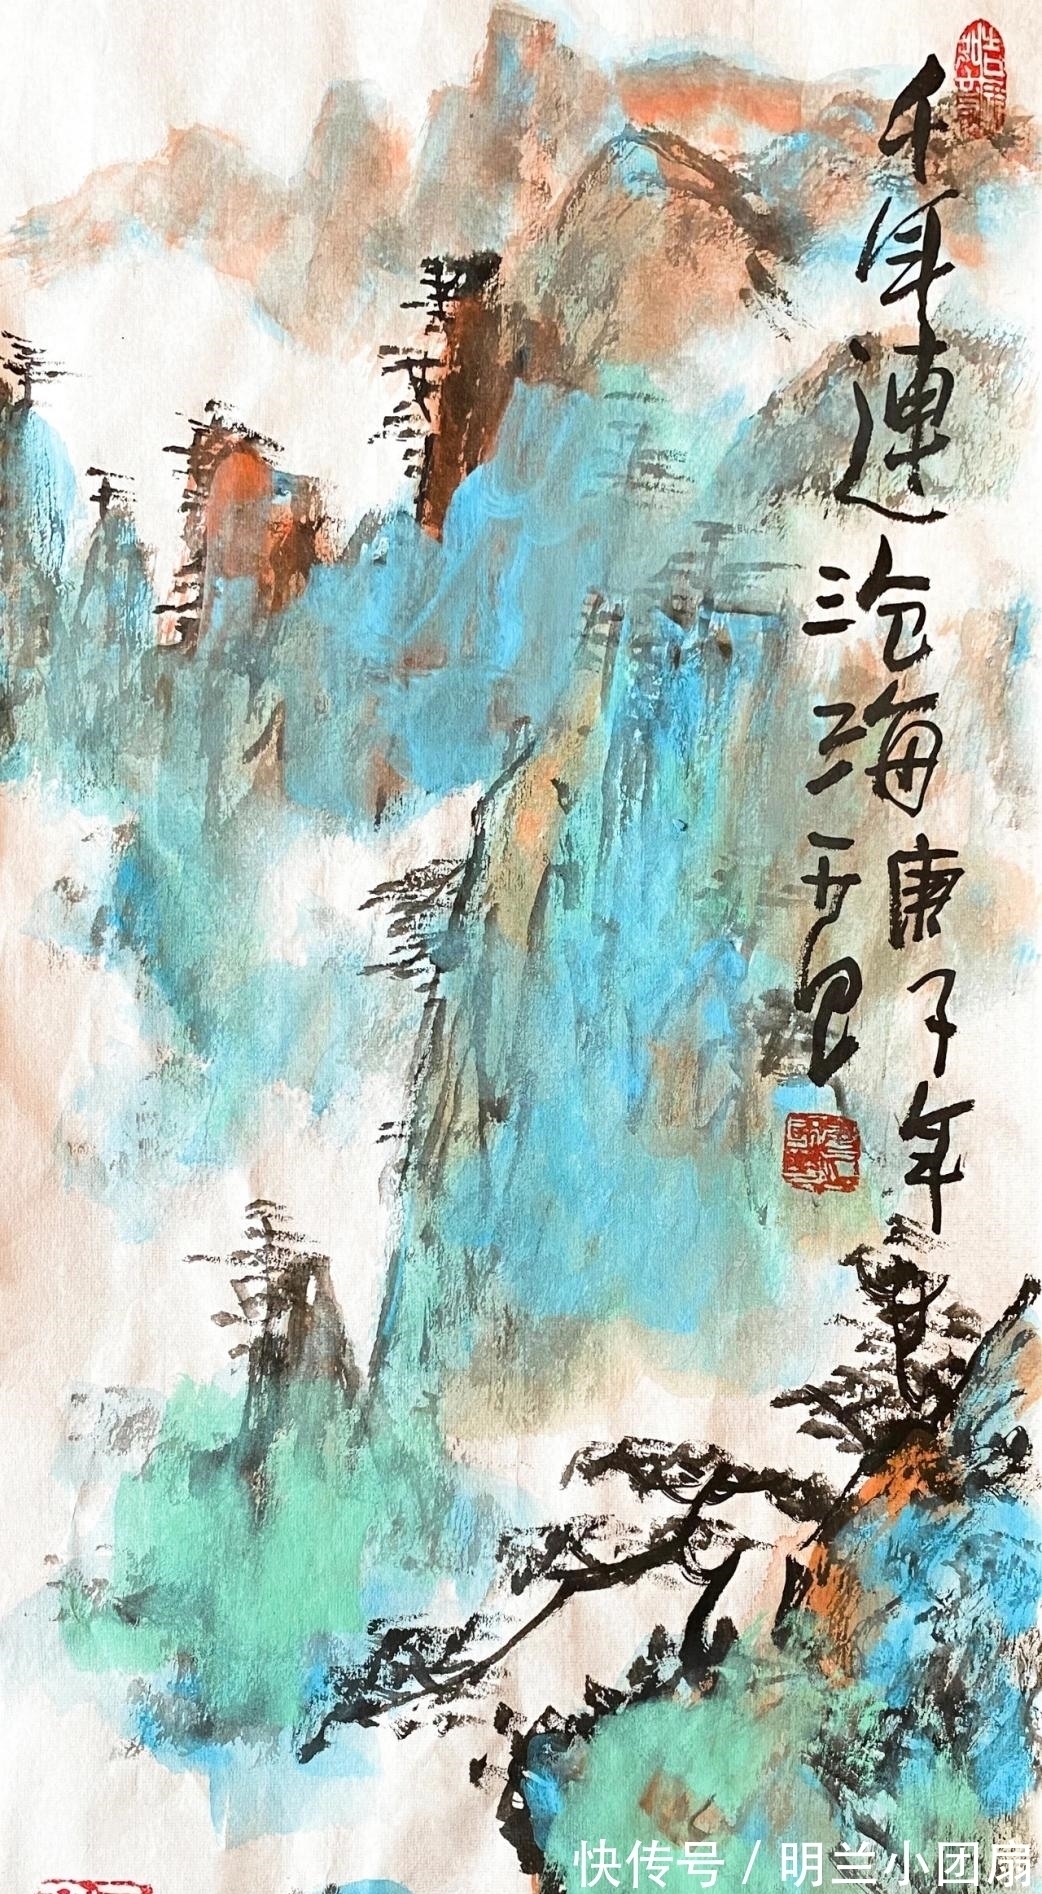 千年連沧海庚子年
快传号 / 明兰小团扇